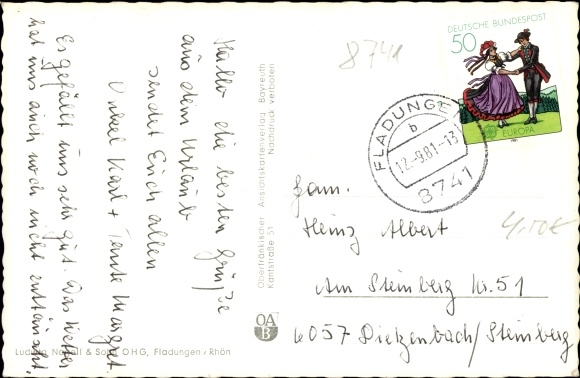 Hallo die besten Grüße
aus dem Urlaub
sendet Euch allen
Onkel Karl + Tante Margret
Es gefällt uns sehr gut. Das Wetter
hat uns auch noch nicht enttäuscht.
Ludwig & Sohn OHG, Fladungen / Rhön
Oberfränkischer Ansichtskartenverlag Bayreuth
Kantstraße 51 Nachdruck verboten
OA
B
8741
DEUTSCHE BUNDESPOST
50
EUROPA
FLADUNGEN
b
12.-9.81-13
8741
4,50€
Fam.
Heinz Albert
Am Steinberg Nr. 51
6057 Dietzenbach/Steinberg